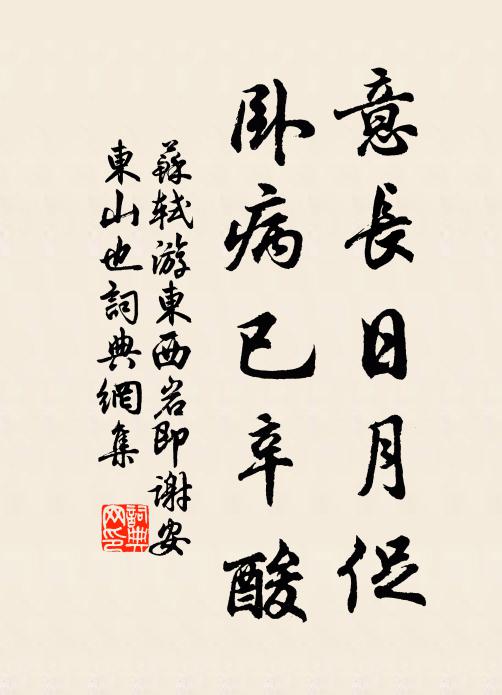 意長日月促
卧病已辛酸
蘇軾游東西岩即謝安
東山也詞典網集
詞典
网印